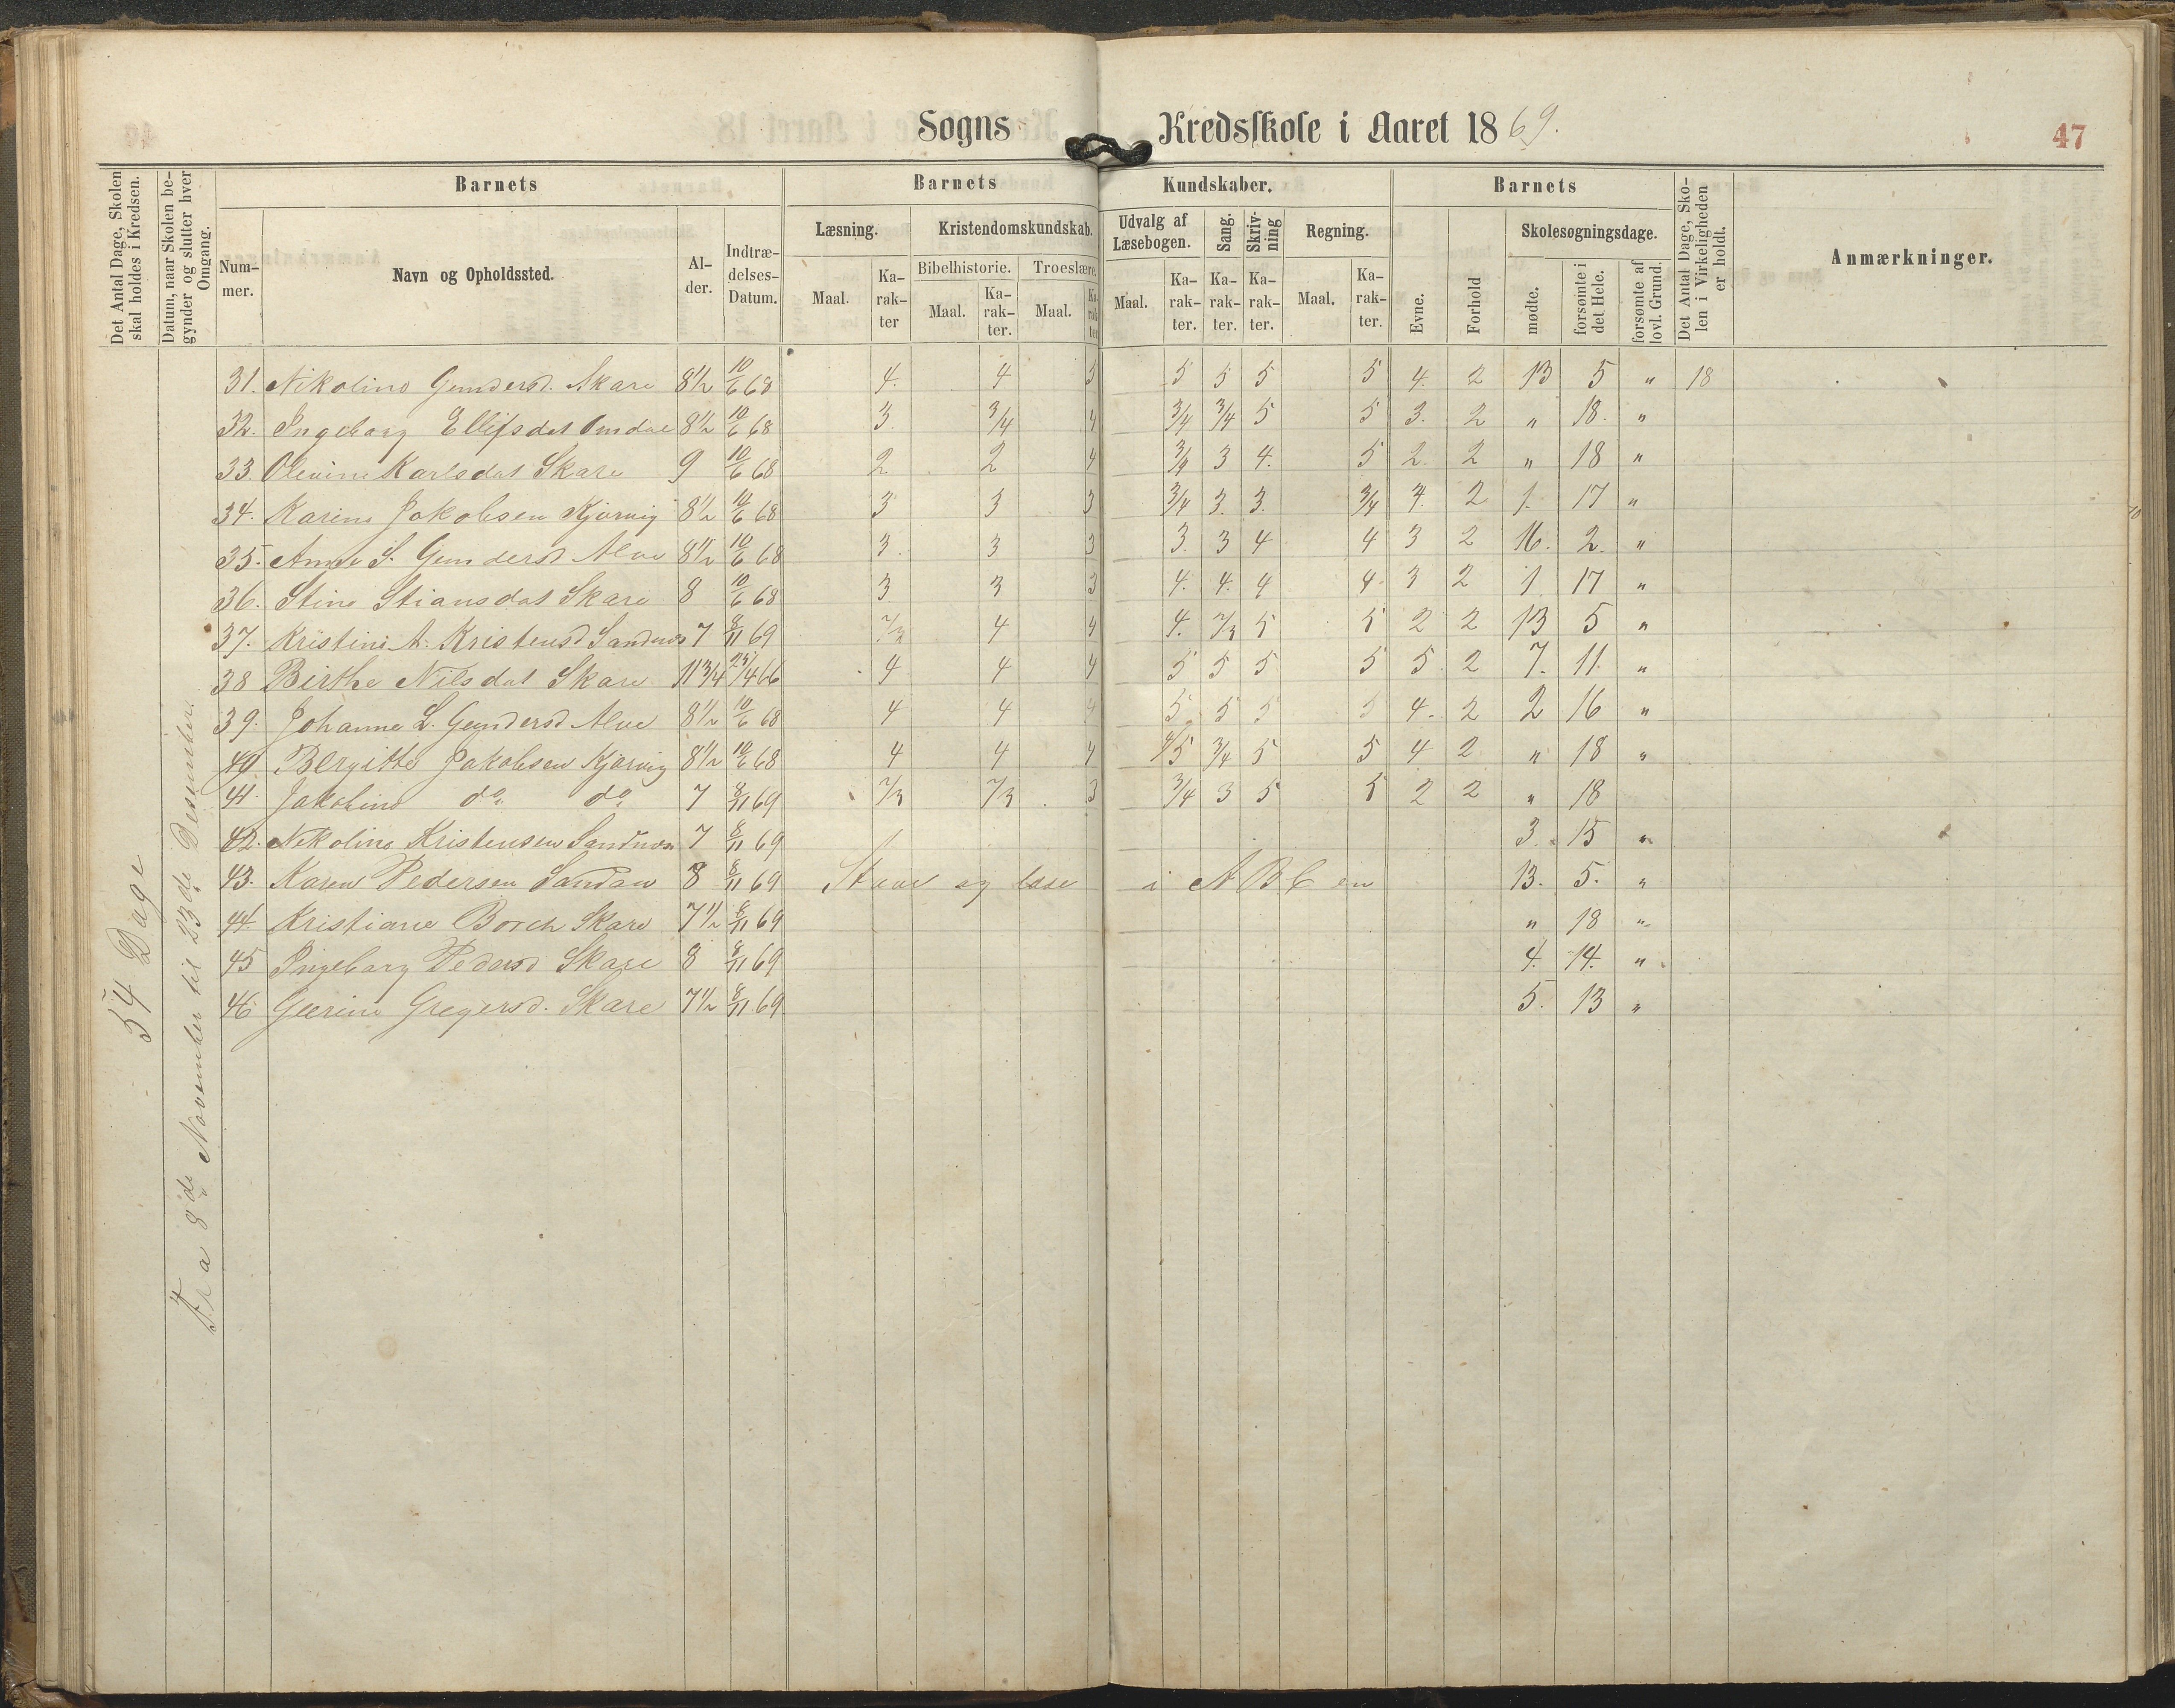 Sogns Kredsskole i Aaret 1869.
47
Det Antal Dage, Skolen skal holdes i Kredsen.
Datum, naar Skolen begynder og slutter hver Omgang.
Barnets
Barnets
Kundskaber.
Barnets
Det Antal Dage, Skolen i Virkeligheden er holdt.
Anmærkninger.
Nummer.
Navn og Opholdssted.
Alder.
Indtrædelses-Datum.
Læsning.
Kristendomskundskab.
Udvalg af Læsebogen.
Sang.
Skrivning
Regning.
Evne.
Forhold
Skolesøgningsdage.
Bibelhistorie.
Troeslære.
Maal.
Karakter
Maal.
Karakter.
Maal.
Karakter
Maal.
Karakter.
Karakter.
Karakter.
Maal.
Karakter.
mødte.
forsømte i det Hele.
forsømte af lovl. Grund.
54 Dage
Fra 8de November til 23de Desember.
31. Nikoline Gundersd. Skare 8½ 10/6 68 4. 4 5 5 5 5 5 4. 2 13 5 " 18
32. Ingeborg Ellifsdat Omdal 8½ 10/6 68 3. 3/4 4 3/4 3/4 5 5 3. 2 " 18. "
33. Olevine Karlsdat Skare 9 10/6 68 2 2 4 3/4 3 4. 5 2. 2 " 18 "
34. Karine Jakobsen Kjørvig 8½ 10/6 68 3 3 3 3/4 3. 3. 3/4 4. 2 1. 17 "
35. Anne S. Gundersd Alve 8½ 10/6 68 3. 3 3 3. 3 4 4 3 2 16. 2. "
36. Stine Stiansdat Skare 8 10/6 68 3 3 3 4. 4. 4 4. 3 2 1 17 "
37. Kristine A. Kristensd Sandnæs 7 8/11 69 2/3 4 4 4. 2/3 5 5 2 2 13 5 "
38 Birthe Nilsdat Skare 11¾ 25/4 66 4 4 4 5 5 5 5 5. 2 7. 11. "
39. Johanne L. Gundersd Alve 8½ 10/6 68 4 4 4 5. 5 5 5 4. 2 2 16 "
40. Bergitte Jakobsen Kjørvig 8½ 10/6 68 4 4 4 4/5 3/4 5 5 4 2 " 18 "
41. Jakobine do do 7 8/11 69 2/3 2/3 3 3/4 3 5 5 2 2 " 18
42. Nikoline Kristensen Sandnæs 7 8/11 69 3. 15 "
43. Karen Pedersen Sandau 8 8/11 69 Stave og læse i ABC en 13. 5. "
44. Kristiane Borch Skare 7½ 8/11 69 " 18 "
45 Ingeborg Pedersd Skare 8 8/11 69 4. 14. "
46 Geerine Gregersd. Skare 7½ 8/11 69 5. 13 "